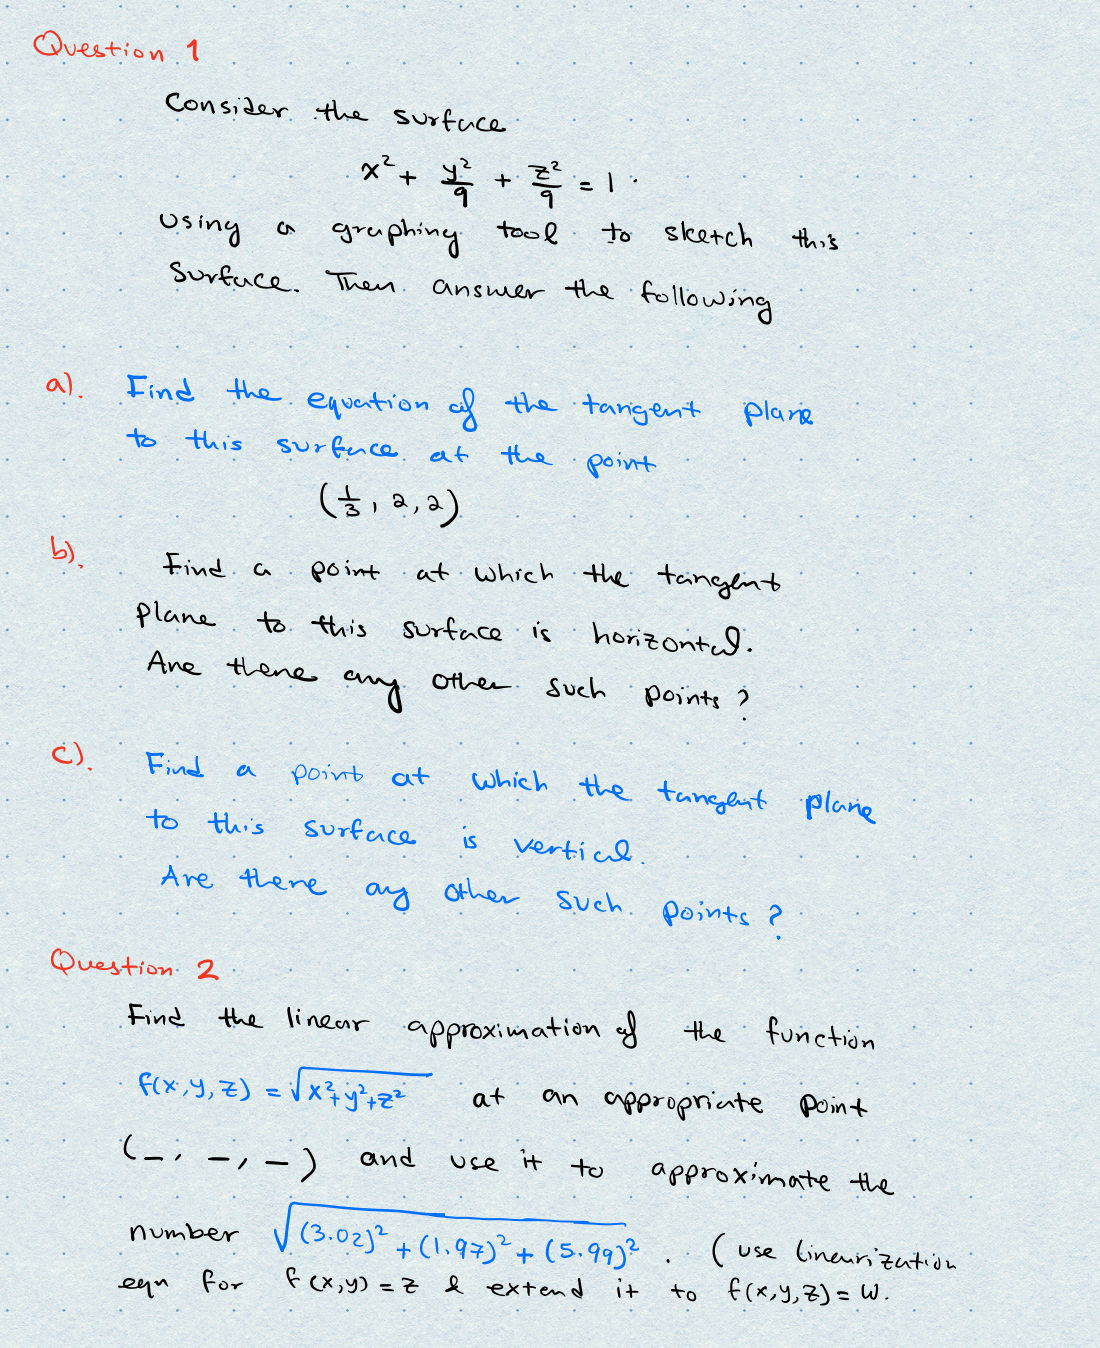 Question 1
Consider the surface
x² + y²/9 + z²/9 = 1.
Using a graphing tool to sketch this
surface. Then answer the following
a). Find the equation of the tangent plane
to this surface at the point
(1/3, 2, 2)
b). Find a point at which the tangent
plane to this surface is horizontal.
Are there any other such points?
c). Find a point at which the tangent plane
to this surface is vertical.
Are there any other such points?
Question 2
Find the linear approximation of the function
f(x,y,z) = √(x²+y²+z²) at an appropriate point
(_, _, _) and use it to approximate the
number √((3.02)² + (1.97)² + (5.99)²). (use linearization
eqn for f(x,y) = z & extend it to f(x,y,z) = w.